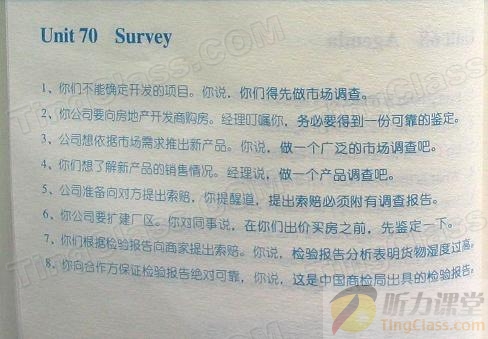 Unit 70 Survey
1、你们不能确定开发的项目。你说，你们得先做市场调查。
2、你公司要向房地产开发商购房。经理叮嘱你，务必要得到一份可靠的鉴定。
3、公司想依据市场需求推出新产品。你说，做一个广泛的市场调查吧。
4、你们想了解新产品的销售情况。经理说，做一个产品调查吧。
5、公司准备向对方提出索赔，你提醒道，提出索赔必须附有调查报告。
6、你公司要扩建厂区。你对同事说，在你们出价买房之前，先鉴定一下。
7、你们根据检验报告向商家提出索赔。你说，检验报告分析表明货物湿度过高。
8、你向合作方保证检验报告绝对可靠，你说，这是中国商检局出具的检验报告
听力课堂
TingClass.com